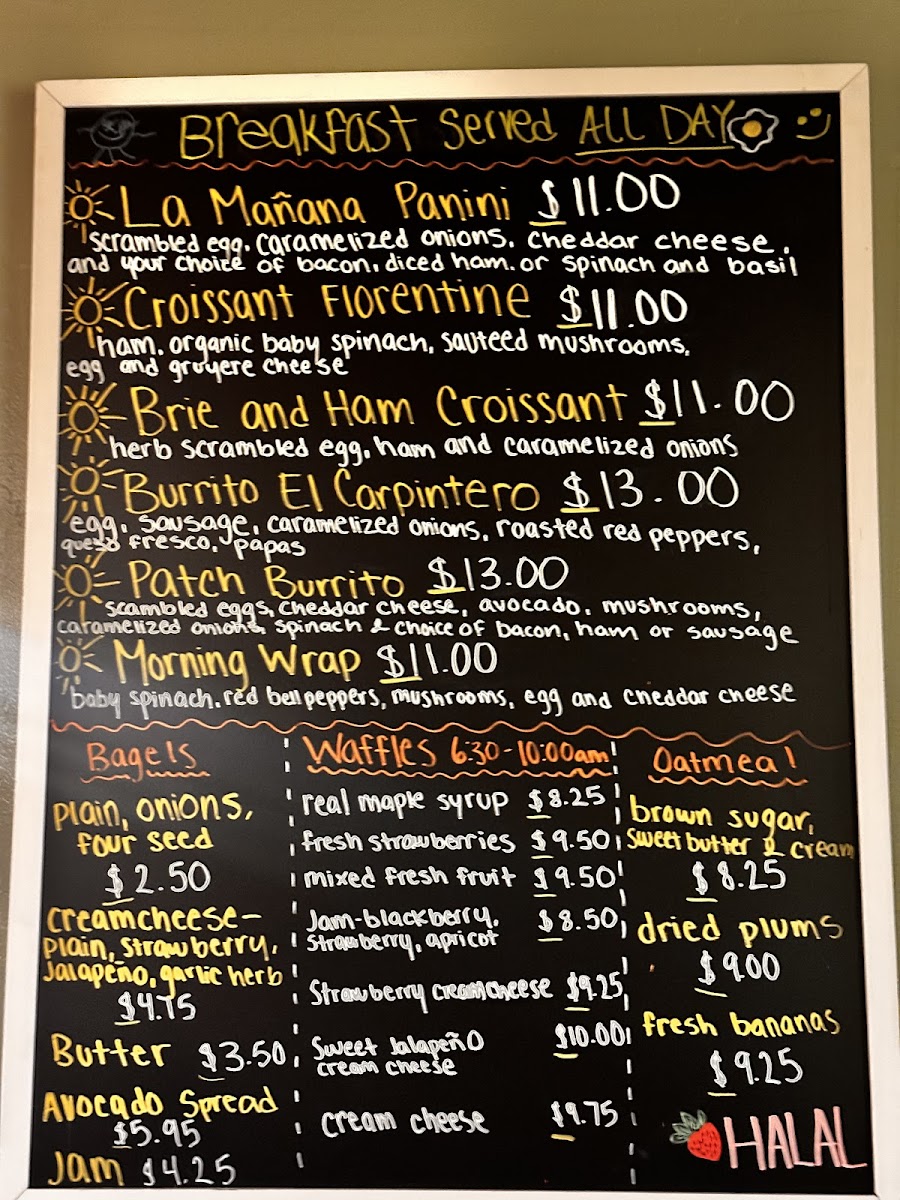 Breakfast Served ALL DAY
La Mañana Panini $11.00
scrambled egg, caramelized onions, cheddar cheese,
and your choice of bacon, diced ham, or spinach and basil
Croissant Florentine $11.00
ham, organic baby spinach, sauteed mushrooms,
egg and gruyere cheese
Brie and Ham Croissant $11.00
herb scrambled egg, ham and caramelized onions
Burrito El Carpintero $13.00
egg, sausage, caramelized onions, roasted red peppers,
queso fresco, papas
Patch Burrito $13.00
scambled eggs, cheddar cheese, avocado, mushrooms,
caramelized onions, spinach & choice of bacon, ham or sausage
Morning Wrap $11.00
baby spinach, red bell peppers, mushrooms, egg and cheddar cheese
Bagels
plain, onions,
four seed
$2.50
creamcheese-
plain, strawberry,
Jalapeño, garlic herb
$4.75
Butter $3.50
Avocado Spread
$5.95
Jam $4.25
Waffles 6:30-10:00am
real maple syrup $8.25
fresh strawberries $9.50
mixed fresh fruit $9.50
Jam-blackberry, $8.50
strawberry, apricot
Strawberry creamcheese $9.25
Sweet Jalapeño $10.00
cream cheese
cream cheese $9.75
Oatmeal
brown sugar,
sweet butter & cream
$8.25
dried plums
$9.00
fresh bananas
$9.25
HALAL